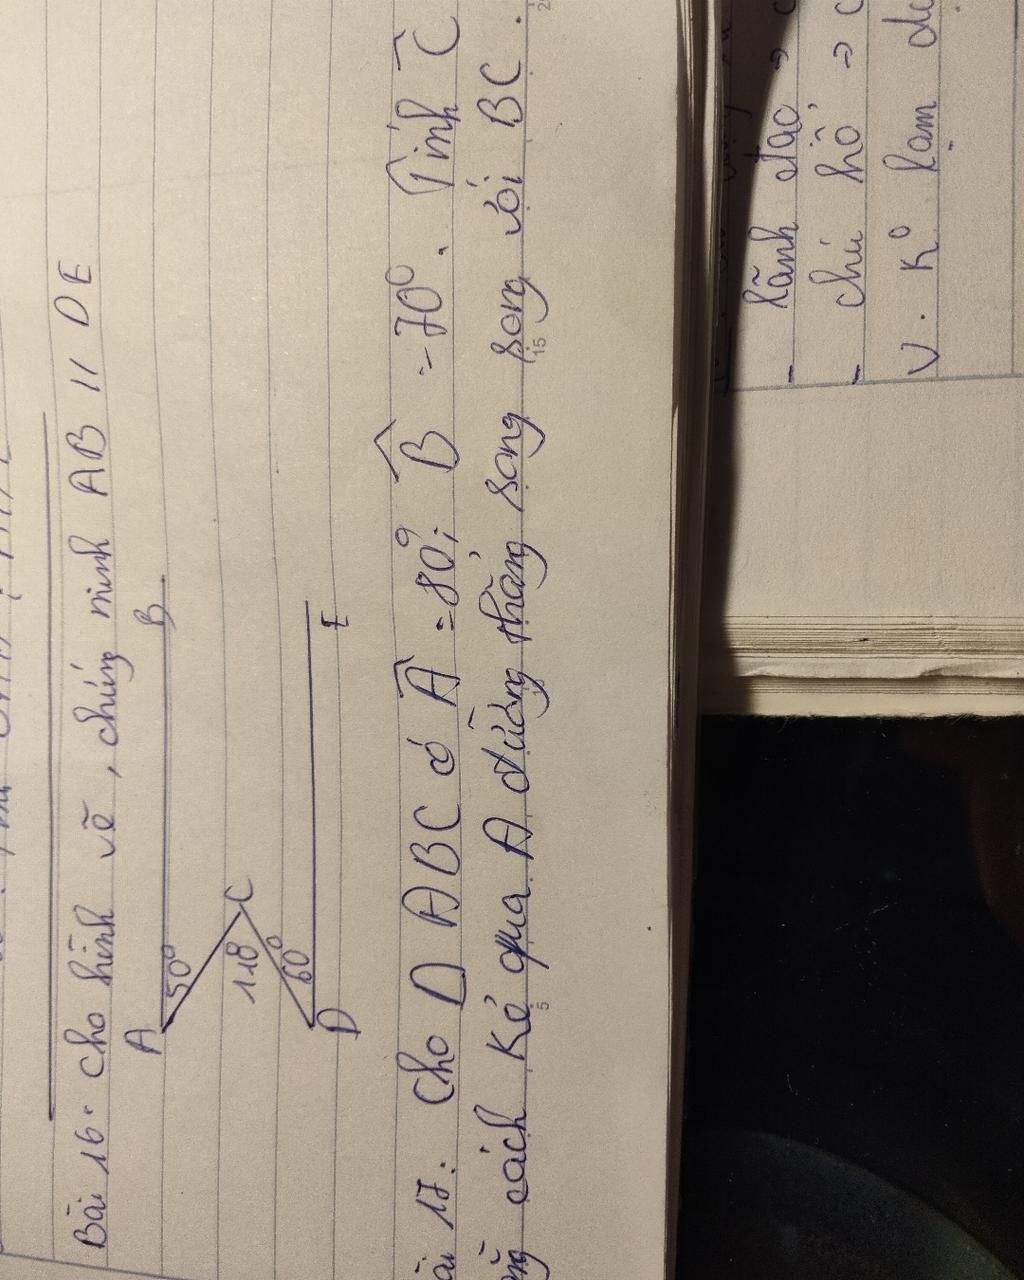 Bài 16. Cho hình vẽ, chứng minh AB // DE
A
B
50°
C
110°
60°
D
E
ài 17. Cho D ABC có Â = 80°; B̂ = 70°. Tính Ĉ
cách Kẻ qua A đường thẳng song song với BC.
5
15
- lãnh đạo → c
- chú hồ → c
V. K° lam